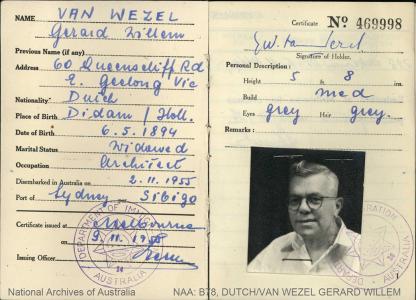 NAME VAN WEZEL
Gerard Willem
Previous Name (if any)
Address 60 Queenscliff Rd
E. Geelong Vic
Nationality Dutch
Place of Birth Didam / Holl.
Date of Birth 6.5.1894
Marital Status Widowed
Occupation Architect
Disembarked in Australia on 2.11.1955
Port of Sydney per Sibigo
Certificate issued at Melbourne
on 9.11.1955
Issuing Officer
DEPARTMENT OF IMMIGRATION
AUSTRALIA
Certificate No 469998
Signature of Holder.
Personal Description:
Height 5 ft. 8 in.
Build med
Eyes grey Hair grey.
Remarks:
National Archives of Australia
NAA: B78, DUTCH/VAN WEZEL GERARD WILLEM